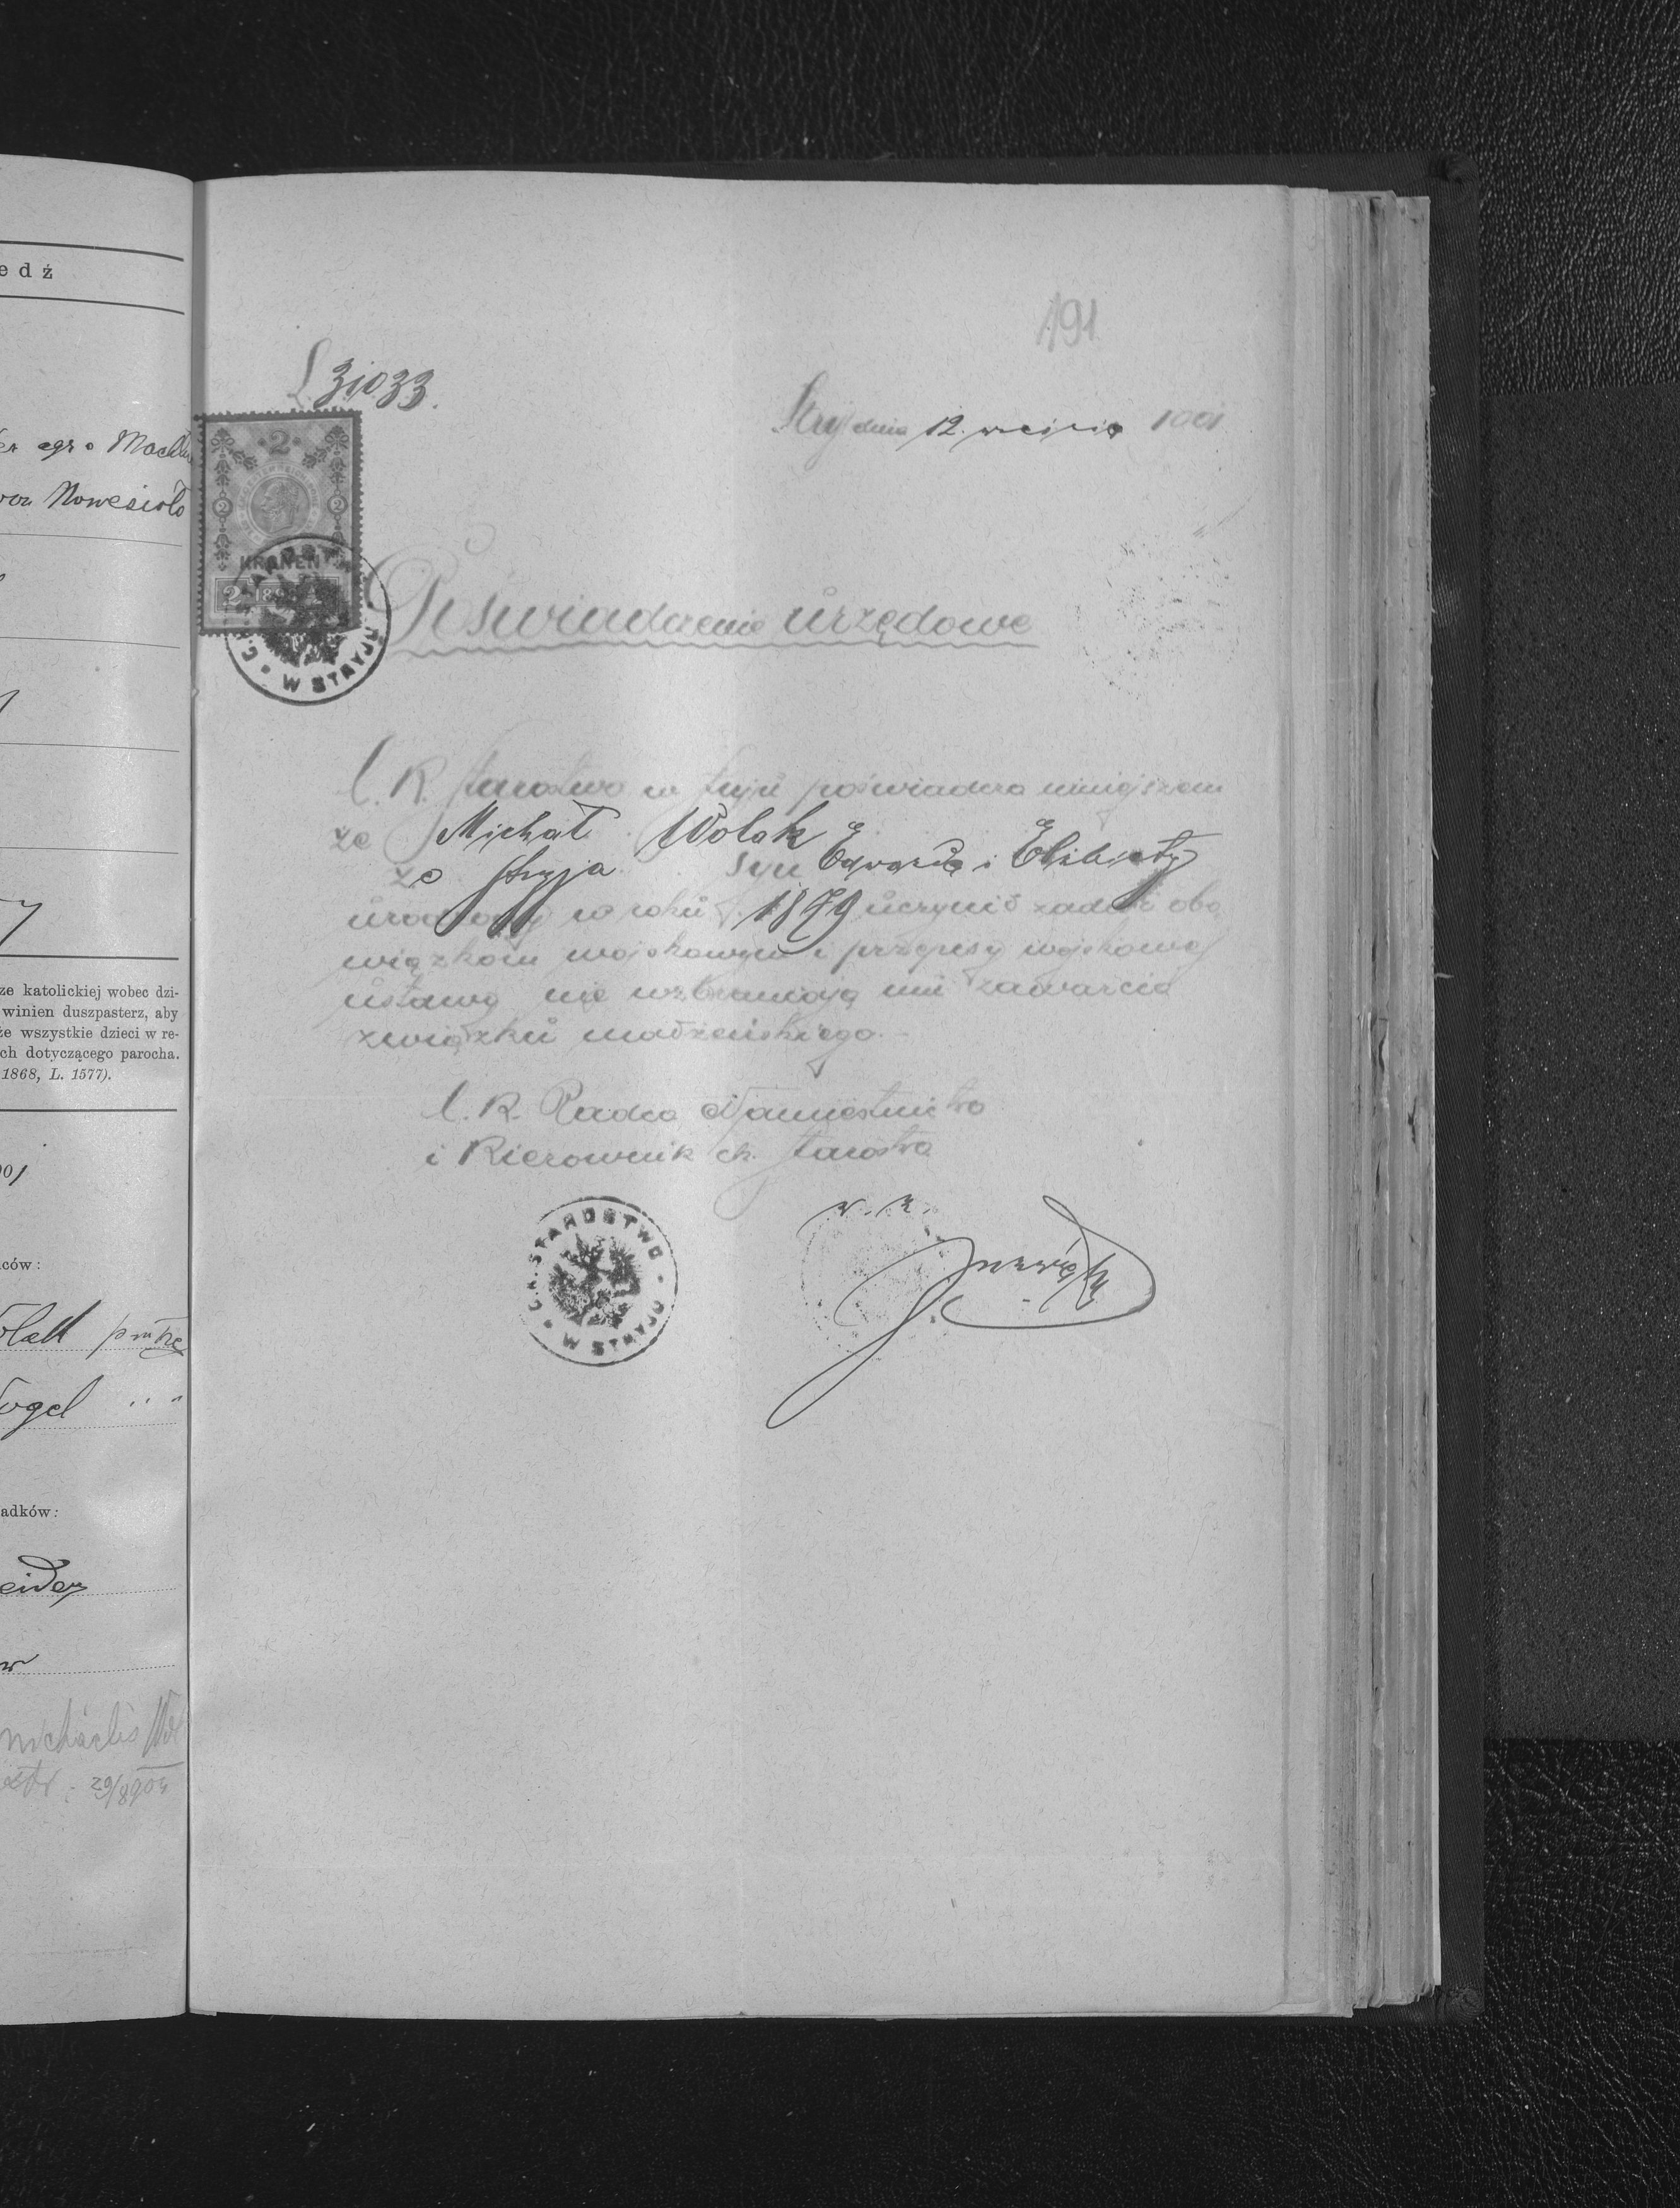 edź
er agr o Machl
Nowesioło
ze katolickiej wobec dzi-
winien duszpasterz, aby
że wszystkie dzieci w re-
ch dotyczącego parocha.
1868, L. 1577).
901
ców:
ogel " "
adków:
eider
michaelis
29/8904
191
L. 31033.
Stryj dnia 12. września 1901
2
2 2
KRONEN
2 189
C. K. STAROSTWO W STRYJU
Poświadczenie urzędowe
C. K. Starostwo w Stryju poświadcza niniejszem
że Michał Wolak
ze Stryja syn Edwarda i Elżbiety
urodzony w roku 1879 uczynił zadość obo
wiązkom wojskowym i przepisy wojskowej
ustawy nie wzbraniają mu zawarcia
związku małżeńskiego.
C. K. Radca Namiestnictwa
i Kierownik ck. Starostwa
C. K. STAROSTWO W STRYJU